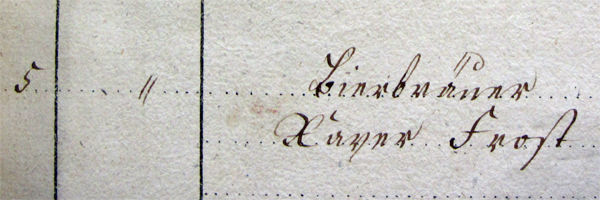 5 " Bierbräuer
Xaver Frost